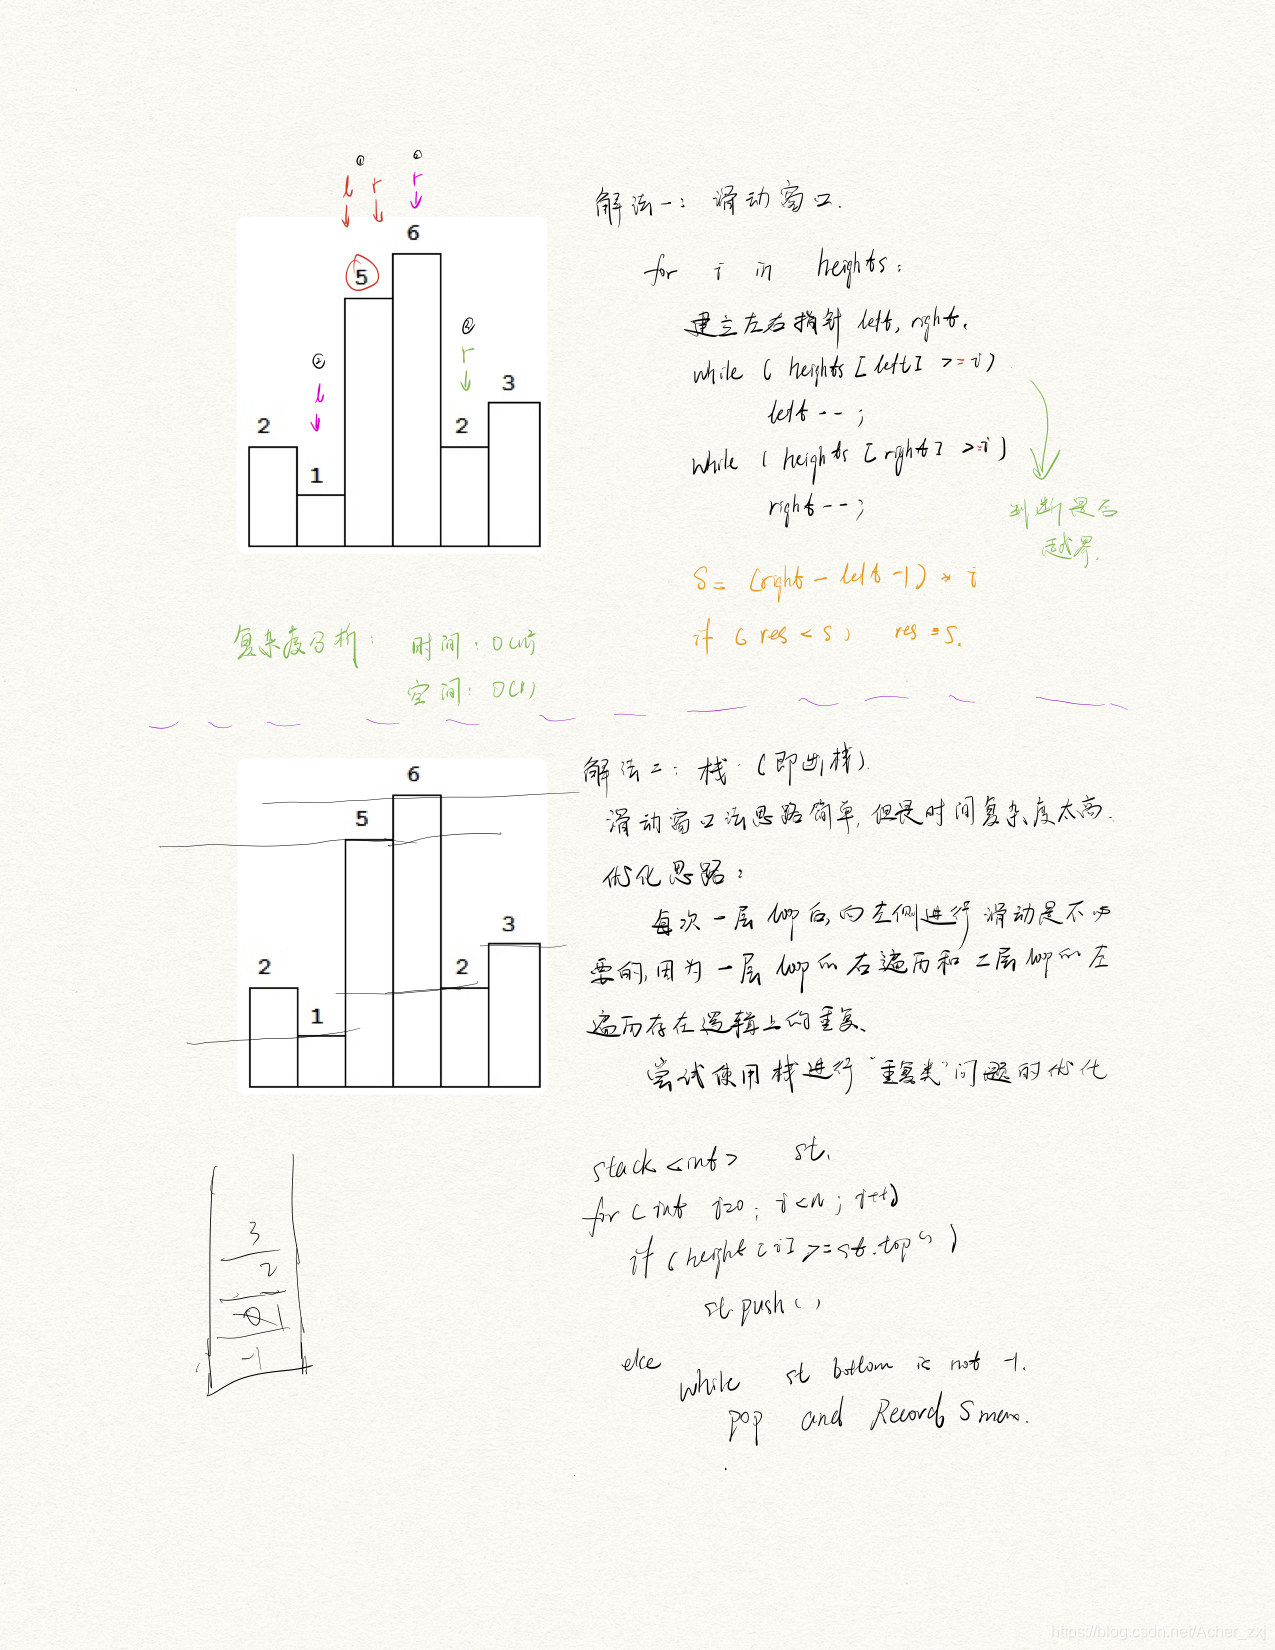 ① l r ② r
6
5
② l
② r
3
2
2
1
解法一: 滑动窗口.
for i in heights:
建立左右指针 left, right.
while ( heights [left] >= i )
left -- ;
while ( heights [right] >= i )
right -- ;
判断是否
越界.
S = (right - left -1) * i
if ( res < S ) res = S.
复杂度分析: 时间: O(n²)
空间: O(1)
6
5
3
2
2
1
解法二: 栈. (即出栈).
滑动窗口法思路简单, 但是时间复杂度太高.
优化思路:
每次一层 loop 后, 向左侧进行滑动是不必
要的, 因为一层 loop 的右遍历和二层 loop 的左
遍历存在逻辑上的重复、
尝试使用栈进行“重复类”问题的优化
stack <int> st.
for ( int i=0 ; i<n ; i++)
if ( height [i] >= st.top() )
st.push ( )
else
while st bottom is not -1.
pop and Record Smax.
3
2
-1
https://blog.csdn.net/Acher_zxj